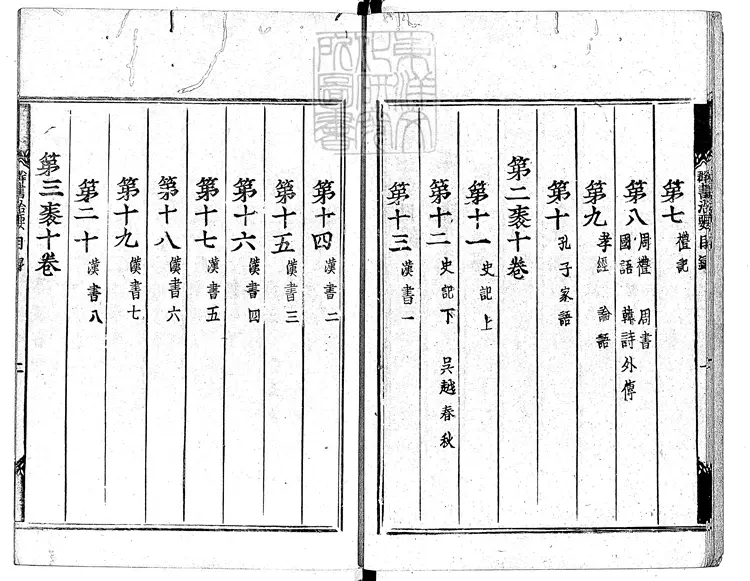 第七 禮記
第八 周禮 周書 國語 韓詩外傳
第九 孝經 論語
第十 孔子家語
第二袠十卷
第十一 史記上
第十二 史記下 吳越春秋
第十三 漢書一
群書治要目錄 一
第十四 漢書二
第十五 漢書三
第十六 漢書四
第十七 漢書五
第十八 漢書六
第十九 漢書七
第二十 漢書八
第三袠十卷
群書治要目錄 二